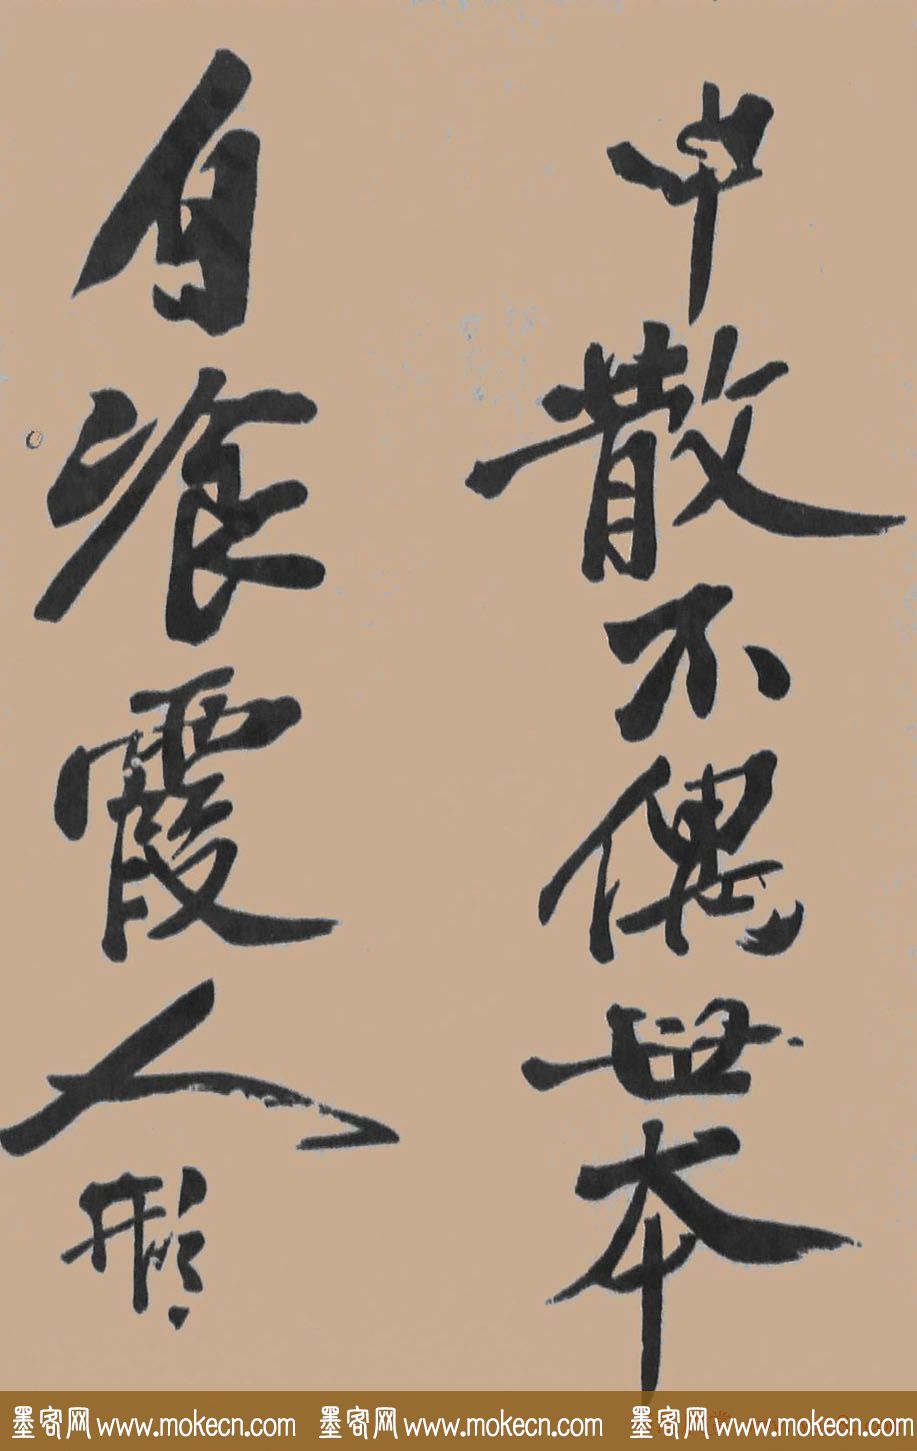 中散不偶世本
自飡霞人形
墨客网 www.mokecn.com 墨客网 www.mokecn.com 墨客网 www.mokecn.com